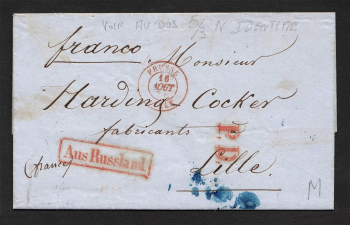 VOIR AU DOS 5/3 N IDENTIFIE
franco Monsieur
PRUSSE
16
AOUT
Harding-Cocker
fabricants
P.P.
Aus Russland
(france)
Lille.
M